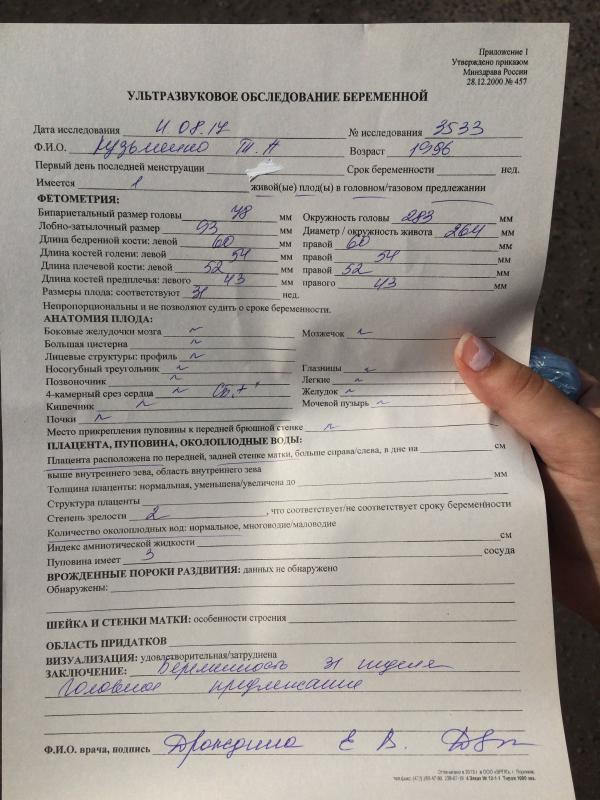 Приложение 1
Утверждено приказом
Минздрава России
28.12.2000 № 457
УЛЬТРАЗВУКОВОЕ ОБСЛЕДОВАНИЕ БЕРЕМЕННОЙ
Дата исследования 11.08.17 № исследования 3533
Ф.И.О. Кузьменко Т. А Возраст 1996
Первый день последней менструации Срок беременности нед.
Имеется 1 живой(ые) плод(ы) в головном/тазовом предлежании
ФЕТОМЕТРИЯ:
Бипариетальный размер головы 78 мм Окружность головы 283 мм
Лобно-затылочный размер 93 мм Диаметр / окружность живота 264 мм
Длина бедренной кости: левой 60 мм правой 60 мм
Длина костей голени: левой 54 мм правой 54 мм
Длина плечевой кости: левой 52 мм правой 52 мм
Длина костей предплечья: левого 43 мм правого 43 мм
Размеры плода: соответствуют 31 нед.
Непропорциональны и не позволяют судить о сроке беременности.
АНАТОМИЯ ПЛОДА:
Боковые желудочки мозга ~ Мозжечок ~
Большая цистерна ~
Лицевые структуры: профиль ~ Глазницы ~
Носогубный треугольник ~ Легкие ~
Позвоночник ~ Желудок ~
4-камерный срез сердца ~ СБ.+ Мочевой пузырь ~
Кишечник ~
Почки ~
Место прикрепления пуповины к передней брюшной стенке ~
ПЛАЦЕНТА, ПУПОВИНА, ОКОЛОПЛОДНЫЕ ВОДЫ:
Плацента расположена по передней, задней стенке матки, больше справа/слева, в дне на см
выше внутреннего зева, область внутреннего зева
Толщина плаценты: нормальная, уменьшена/увеличена до мм
Структура плаценты
Степень зрелости 2 , что соответствует/не соответствует сроку беременности
Количество околоплодных вод: нормальное, многоводие/маловодие
Индекс амниотической жидкости см
Пуповина имеет 3 сосуда
ВРОЖДЕННЫЕ ПОРОКИ РАЗДВИТИЯ: данных не обнаружено
Обнаружены:
ШЕЙКА И СТЕНКИ МАТКИ: особенности строения
ОБЛАСТЬ ПРИДАТКОВ
ВИЗУАЛИЗАЦИЯ: удовлетворительная/затруднена
ЗАКЛЮЧЕНИЕ: Беременность 31 неделя
Головное предлежание
Ф.И.О. врача, подпись Е В.